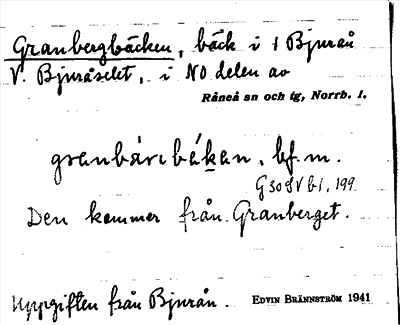 Granbergbäcken, bäck i 1 Bjurån
V. Bjuråselet, i NO delen av
Råneå sn och tg, Norrb. l.
granbärɩbäkan. bf. m.
G 30 S V b 1, 199
Den kommer från Granberget.
Uppgiften från Bjurån. EDVIN BRÄNNSTRÖM 1941